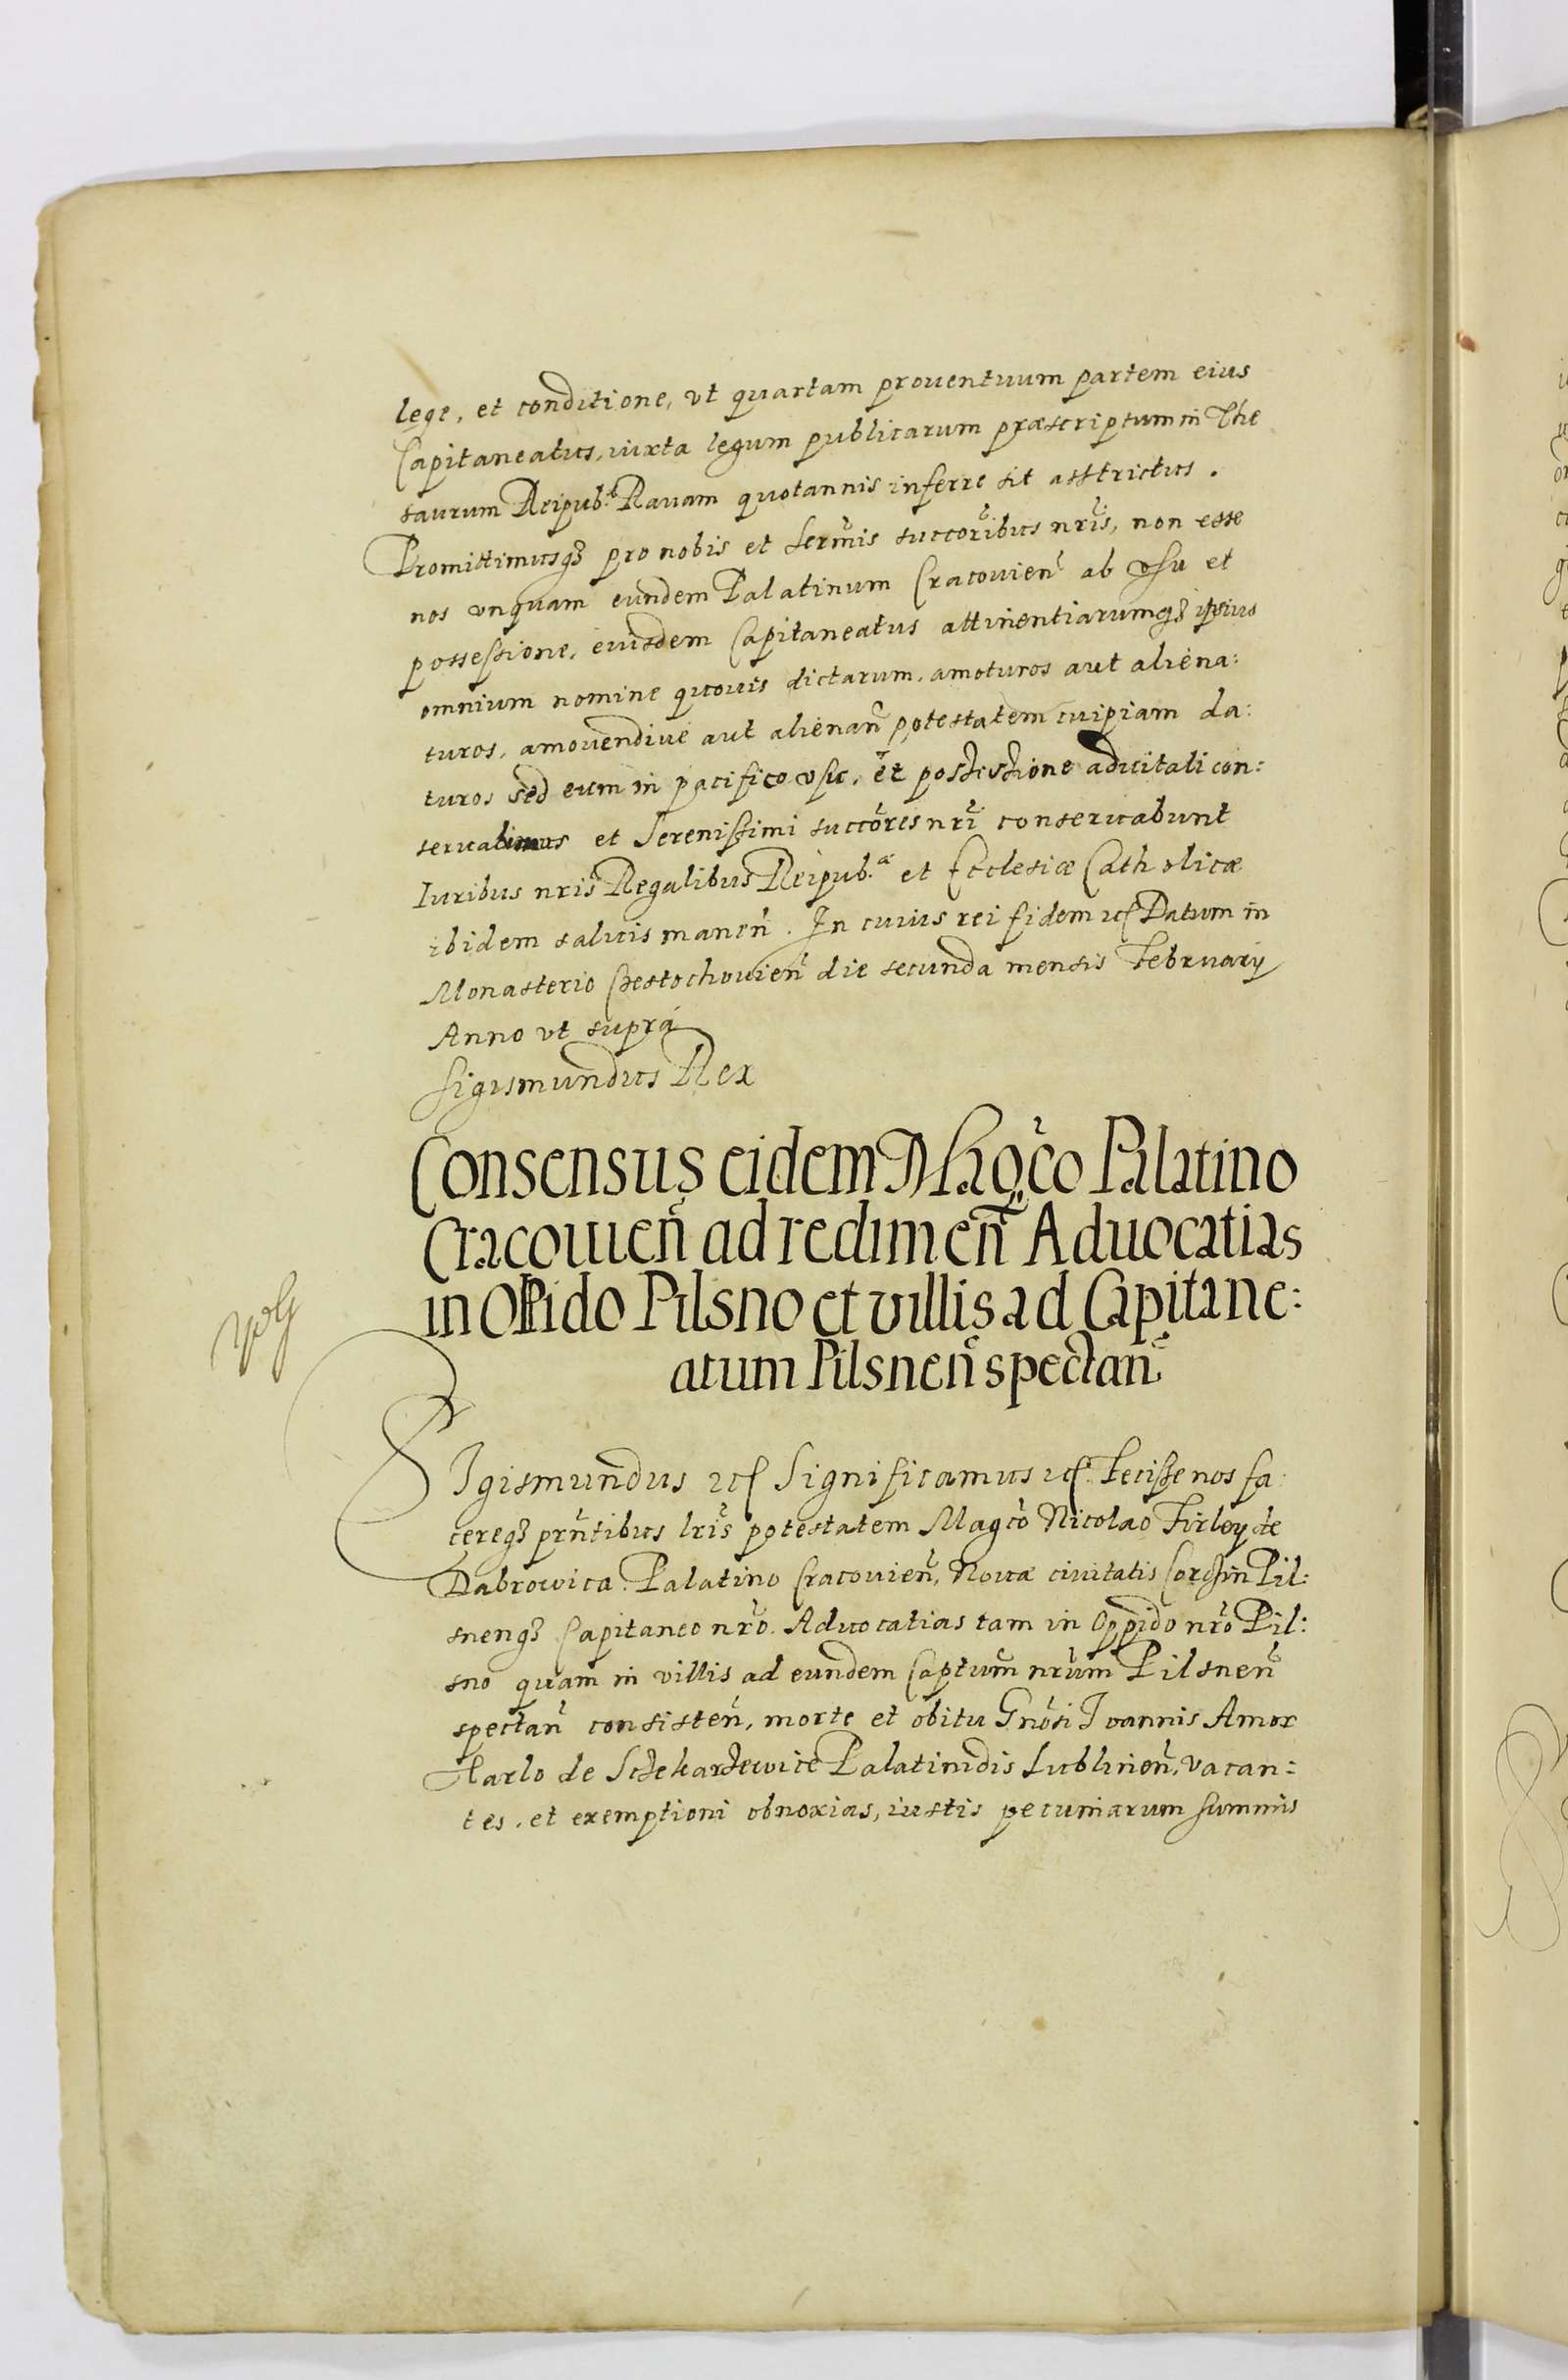 lege, et conditione, vt quartam prouentuum partem eius
Capitaneatus, iuxta legum publicarum præscriptum in The
saurum Reipub: Rauam quotannis inferre sit asstrictus.
Promittimusq3 pro nobis et Serm̃is succor̃ibus nr̃is, non esse
nos vnquam eundem Palatinum Cracouien̄ ab vsu et
possessione, eiusdem Capitaneatus attinentiarumq3 ipsius
omnium nomine quouis dictarum, amoturos aut aliena:
turos, amouendiue aut alienan̄ potestatem cuipiam da:
turos sed eum in pacifico vsu, et possessione aduitali con:
seruabimus et Serenissimi succor̃es nr̃i conseruabunt
Iuribus nr̃is Regalibus Reipub.æ et Ecclesiæ Catholicæ
ibidem saluis manen̄. In cuius rei fidem etc Datum in
Monasterio Cęstochouien̄ die secunda mensis February
Anno vt supra
Sigismundus Rex
Consensus eidem Mag̃co Palatino
Cracouien̄ ad redimen̄ Aduocatias
in Oppido Pilsno et villis ad Capitane:
atum Pilsnen̄ spectan̄
SIgismundus etc Significamus etc. Fecisse nos fa
cereq3 prn̄tibus lr̃is potestatem Magc̃o Nicolao Firley de
Dabrowica Palatino Cracouien̄, Nouæ ciuitatis Corczin Pil:
snenq3 Capitaneo nr̃o. Aduocatias tam in Oppido nr̃o Pil:
sno quam in villis ad eundem Captum̃ nr̃um Pilsnen̄
spectan̄ consisten̄, morte et obitu Gnõsi Ioannis Amor
Tarlo de Sczekarzewice Palatinidis Lublinen̄, vacan:
tes, et exemptioni obnoxias, iustis pecuniarum summis